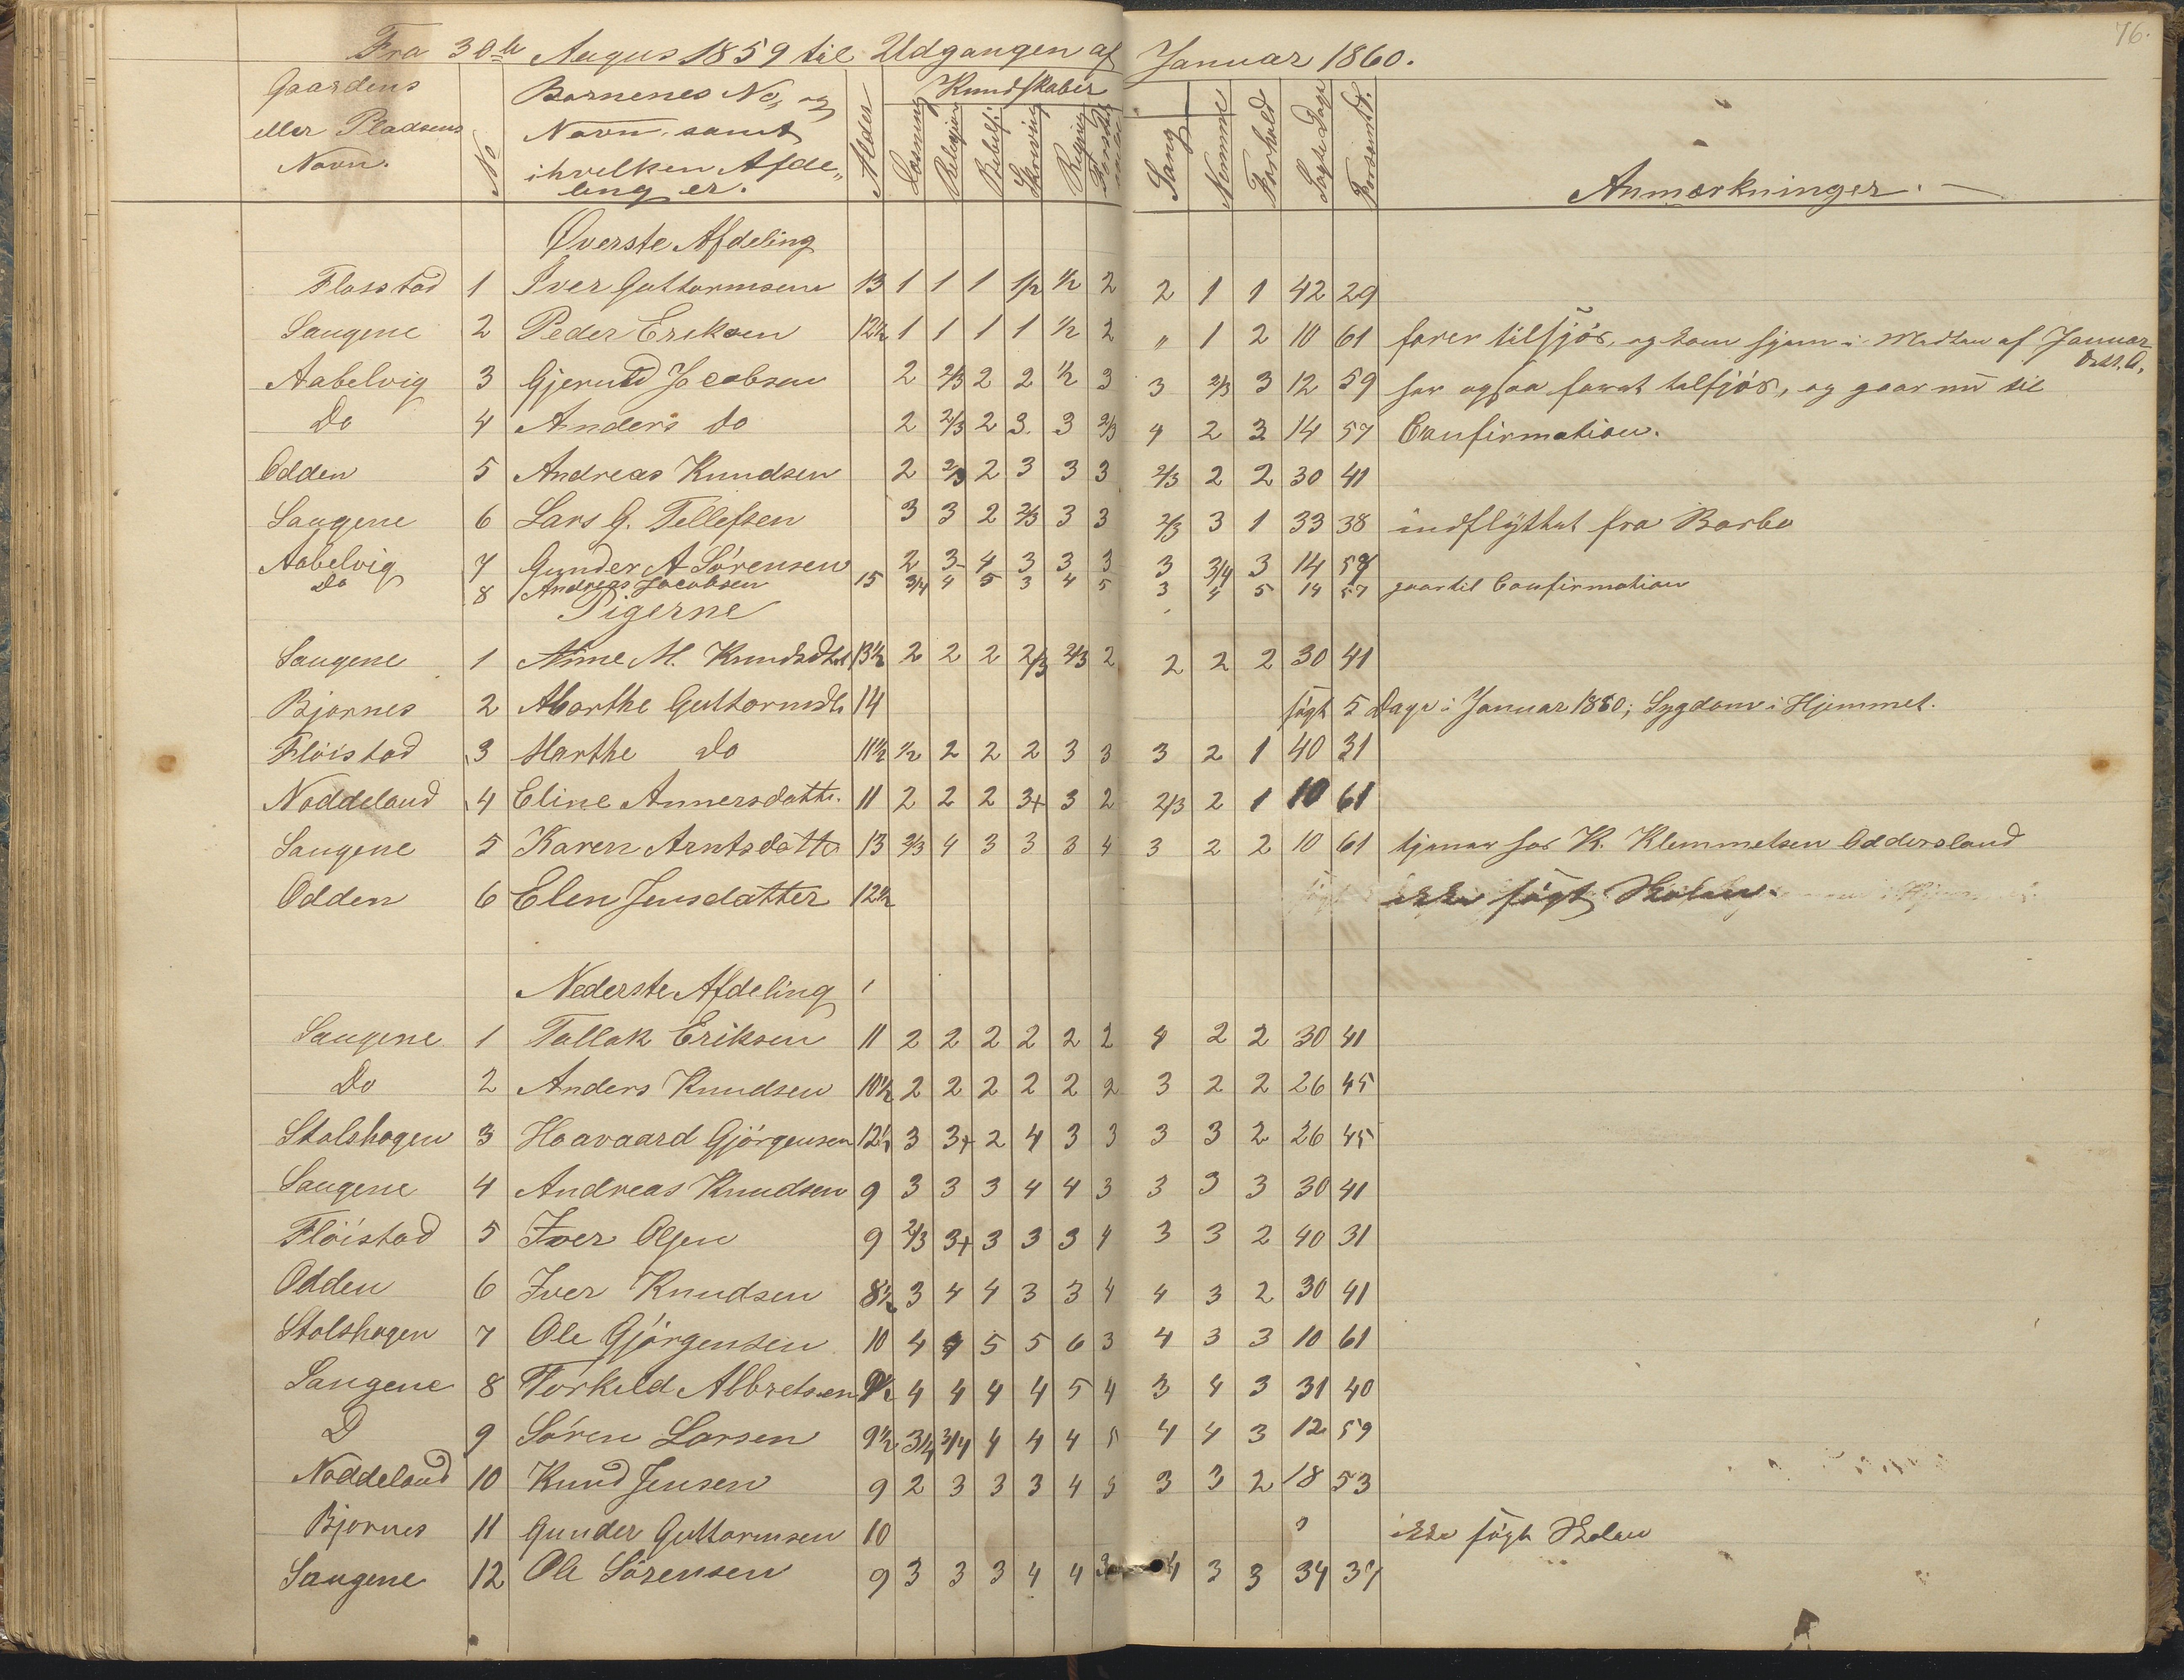 76.
Fra 30te Augus 1859 til Udgangen af Januar 1860.
Gaardens eller Pladsens Navn. | No | Børnenes No, og Navn, samt ihvelken Afdeling er. | Alder | Kundskaber | Læsning | Religion | Bibelh. | Skrivning | Regning | Forst | Sang | Nemme | Forhold | Søgte Dage | Forsømt D. | Anmærkninger.
Øverste Afdeling
Flosstad 1 Iver Guttormsen 13 1 1 1 1/2 1/2 2 2 1 1 42 29
Saugene 2 Peder Eriksen 12½ 1 1 1 1 1/2 2 " 1 2 10 61 farer tilsjös, og kom hjem i Midten af Januar
Aabelvig 3 Gjeruld Jocobsen 2 2/3 2 2 1/2 3 3 2/3 3 12 59 har ogsaa farat tilsjös, og gaar nu til
Do 4 Anders do 2 2/3 2 3 3 2/3 4 2 3 14 57 Confirmation.
Odden 5 Andreas Knudsen 2 2/3 2 3 3 3 2/3 2 2 30 41
Saugene 6 Lars G. Tellefsen 3 3 2 2/3 3 3 2/3 3 1 33 38 indflyttet fra Barbo
Aabelvig 7 Gunder A Sörensen 2 3- 4 3 3 3 3 3/4 3 14 57
Do 8 Andreas Jacobsen 15 3/4 4 5 3 4 5 3 4 5 14 57 gaar til Confirmation
Pigerne
Saugene 1 Anne M. Knudsdtr 13½ 2 2 2 2/3 2/3 2 2 2 2 30 41
Bjornes 2 Marthe Guttormdtr 14 søgt 5 Dage i Januar 1860; Sygdom i Hjemmet.
Flöistad 3 Marthe do 11½ 1/2 2 2 2 3 3 3 2 1 40 31
Noddeland 4 Eline Annersdattr. 11 2 2 2 3+ 3 2 2/3 2 1 10 61
Saugene 5 Karen Arntsdatte 13 2/3 4 3 3 3 4 3 2 2 10 61 tjener hos K. Klemmetsen Oddersland
Odden 6 Elen Jensdatter 12½ ikke søgt Skolen.
Nederste Afdeling
Saugene 1 Tallak Eriksen 11 2 2 2 2 2 2 4 2 2 30 41
Do 2 Anders Knudsen 10½ 2 2 2 2 2 2 3 2 2 26 45
Stolshagen 3 Haavaard Gjörgensen 12½ 3 3+ 2 4 3 3 3 3 2 26 45
Saugene 4 Andreas Knudsen 9 3 3 3 4 4 3 3 3 3 30 41
Flöistad 5 Iver Olsen 9 2/3 3+ 3 3 3 4 3 3 2 40 31
Odden 6 Iver Knudsen 8½ 3 4 4 3 3 4 4 3 2 30 41
Stolshagen 7 Ole Gjörgensen 10 4 4 5 5 6 3 4 3 3 10 61
Saugene 8 Torkild Albretsen 9½ 4 4 4 4 5 4 3 4 3 31 40
D 9 Sören Larsen 9½ 3/4 3/4 4 4 4 5 4 4 3 12 59
Noddeland 10 Knud Jensen 9 2 3 3 3 4 5 3 3 2 18 53
Bjornes 11 Gunder Guttormsen 10 ikke søgt Skolen
Saugene 12 Ole Sörensen 9 3 3 3 4 4 3 4 3 3 34 37